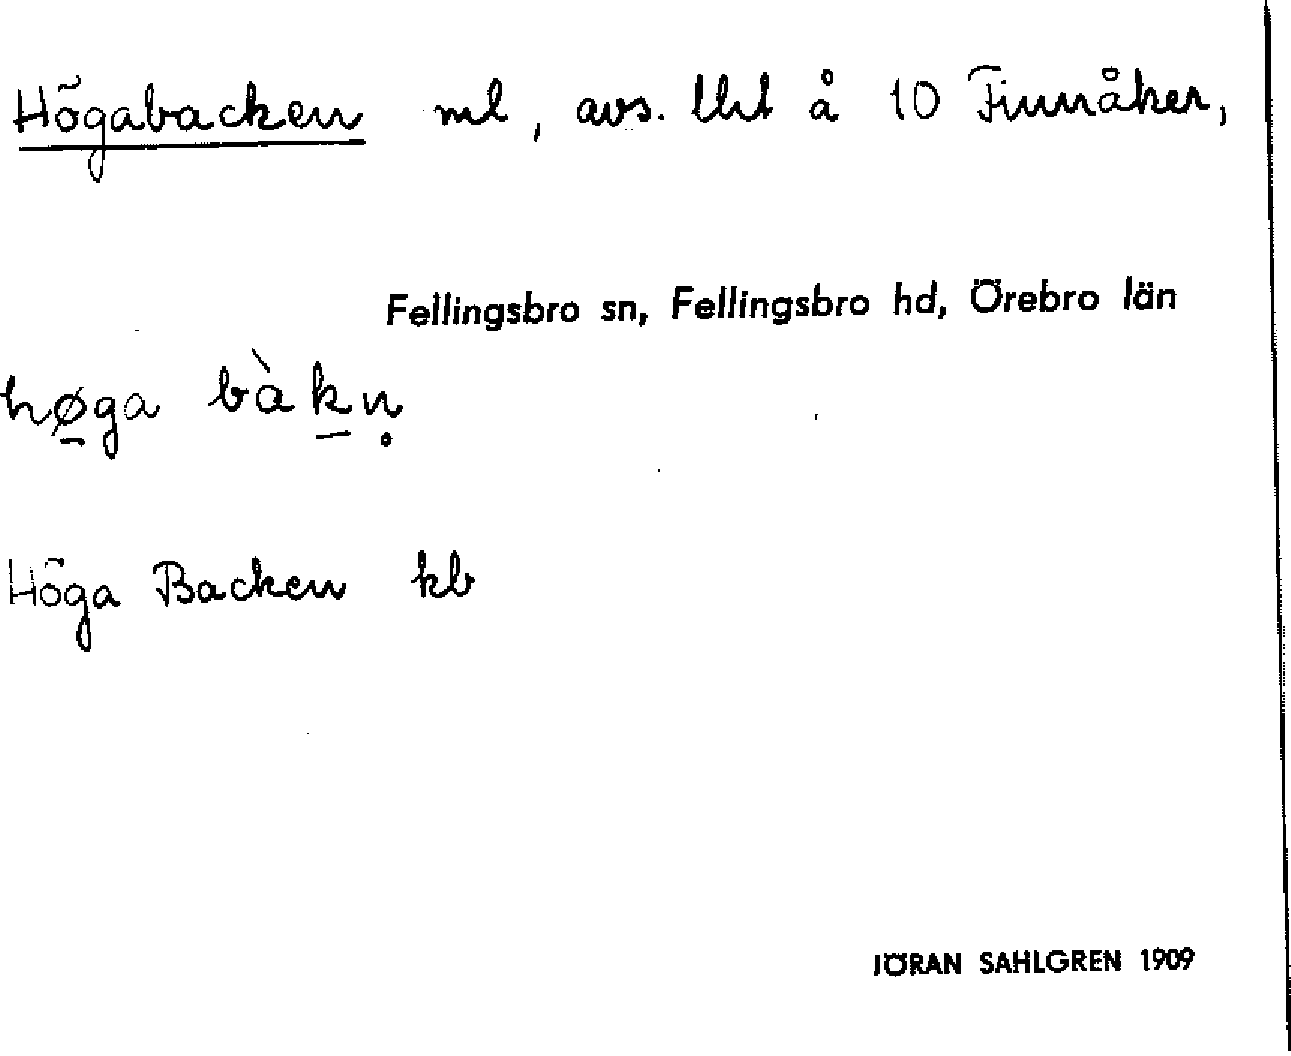 Högabacken ml, avs. lht å 10 Finnåker,
Fellingsbro sn, Fellingsbro hd, Örebro län
hø̠ga bàk̠n̥
Höga Backen kb
JÖRAN SAHLGREN 1909